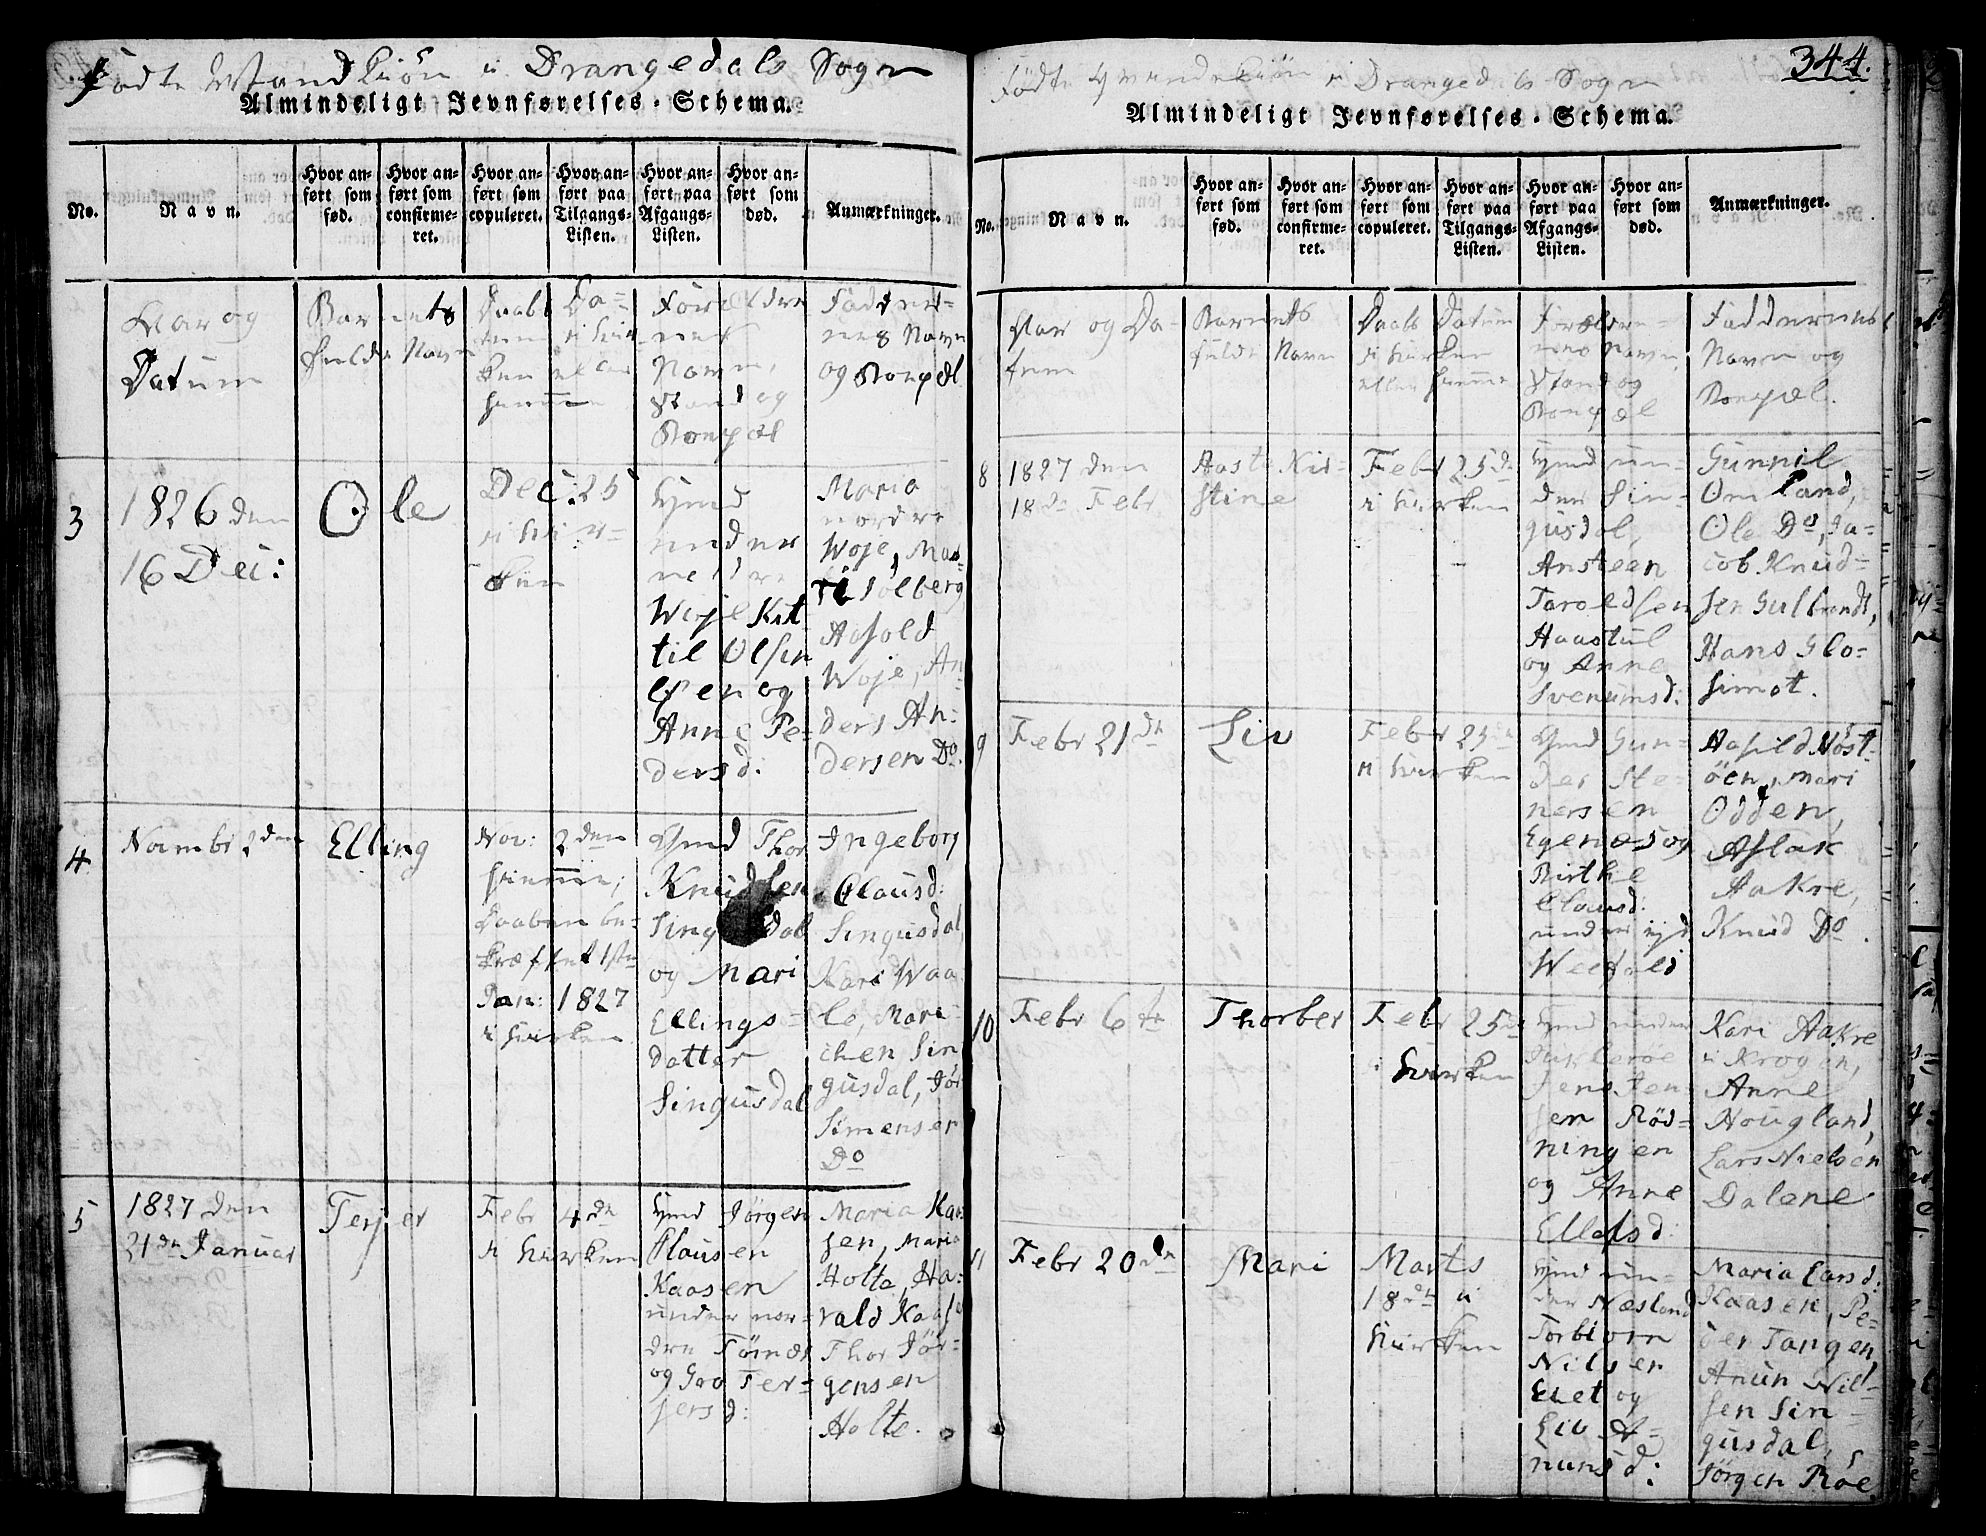 Födte Mandkiön i Drangedals Sogn
Almindeligt Jevnførelses-Schema.
No.
Navn.
Hvor anført som fød.
Hvor anført som confirmeret.
Hvor anført som copuleret.
Hvor anført paa Tilgangs-Listen.
Hvor anført paa Afgangs-Listen.
Hvor anført som død.
Anmærkninger.
Aar og
Datum
Barnets
fulde Navn
Daabs Da=
tum i Kir
ken eller
hiemme
Foreldre
nes
Navn,
Stand og
Bopæl
Fadder=
nes Navn
og Bopæl
3
1826 den
16 Dec:
Ole
Dec: 25
i Kir=
ken
Gmd
under
nedre
Woje Kit
til Olsen
og
Anne Pe=
dersd:
Maria
nordre
Woje, Ma
ri Solberg
Aasold
Woje, An
ders An=
dersen Do.
4
Novembr 2den
Elling
Nov: 2den
hiemme;
Daaben be=
kræftet 1ste
Jan: 1827
i Kirken
Gmd Thor
Knudsen
Singusdal
og Mari
Ellings=
datter
Singusdal
Ingeborg
Clausd:
Singusdal,
Kari Waa
le, Mari
chen Sin
gusdal, Jör
Simensen
Do
5
1827 den
21dn Januar
Terjer
Febr 4dn
i Kirken
Gmd Jörgen
Clausen
Kaasen
under nor=
dre
og Gro Ter=
jersd:
Maria Kaa
sen, Maria
Holte, Ha=
vald Kaase
Thor Jör=
gensen
Holte.
344.
Födte Qvindekiön i Drangedals Sogn
Almindeligt Jevnførelses-Schema.
No.
Navn.
Hvor anført som fød.
Hvor anført som confirmeret.
Hvor anført som copuleret.
Hvor anført paa Tilgangs-Listen.
Hvor anført paa Afgangs-Listen.
Hvor anført som død.
Anmærkninger.
Aar og Da=
tum
Barnets
fulde Navn
Daabs Datum
i Kirken
eller hiemme
Foreldre=
nes Navn,
Stand og
Bopæl
Faddernes
Navn og
Bopæl.
8
1827 den
18de Febr
Aaste Kir=
stine
Febr 25dn
i Kirken
Gmd un=
der Sin=
gusdal,
Ansteen
Taroldsen
Haastul
og Anne
Svenumsd:
Gunnil
Omland,
Ole Do, Ja=
cob Knud=
sen Gulbrands,
Hans Glo=
simot.
9
Febr 21dn
Liv
Febr 25dn
i Kirken
Gmd Gun=
der Ste=
nersen
Egenes og
Birthe
Clausd:
under
Aasild Nöst=
öen, Mari
Odden,
Aslak
Aakre,
Knud Do.
10
Febr 6te
Thorber
Febr 25dn
i Kirken
Gmd under
Jens Jen=
sen Röd=
ningen
og Anne
Ellefsd:
Kari Aakre
i Krogen,
Anne
Hougland,
Lars Nielsen
Dalene
11
Febr 20dn
Mari
Marts
18dn i
Kirken
Gmd un=
der Næsland
Torbiorn
Nilsen
Eiet og
Liv A=
nunsd:
Maria Larsd:
Kaasen, Pe=
der Tangen
Anun Nil=
sen Sin=
gusdal,
Jörgen Röe.